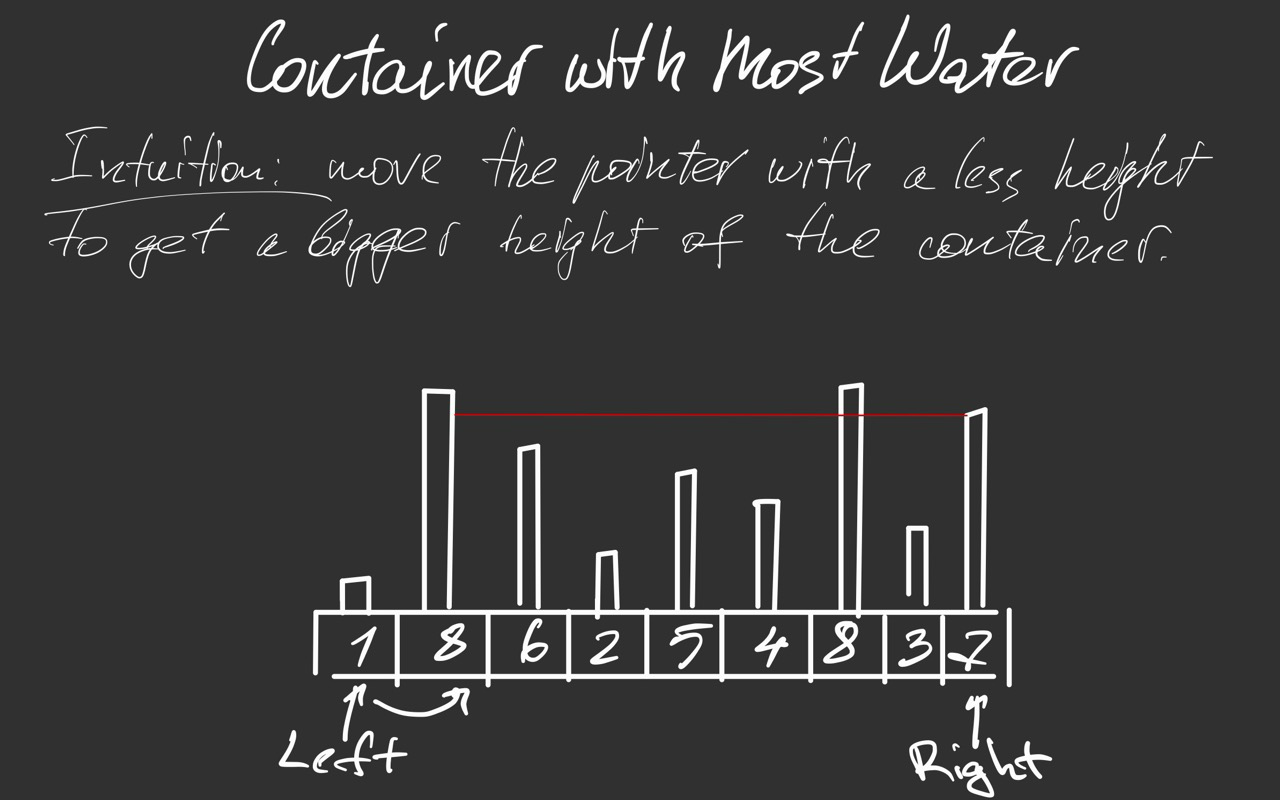 Container with Most Water
Intuition: move the pointer with a less height
to get a bigger height of the container.
1 8 6 2 5 4 8 3 7
Left Right